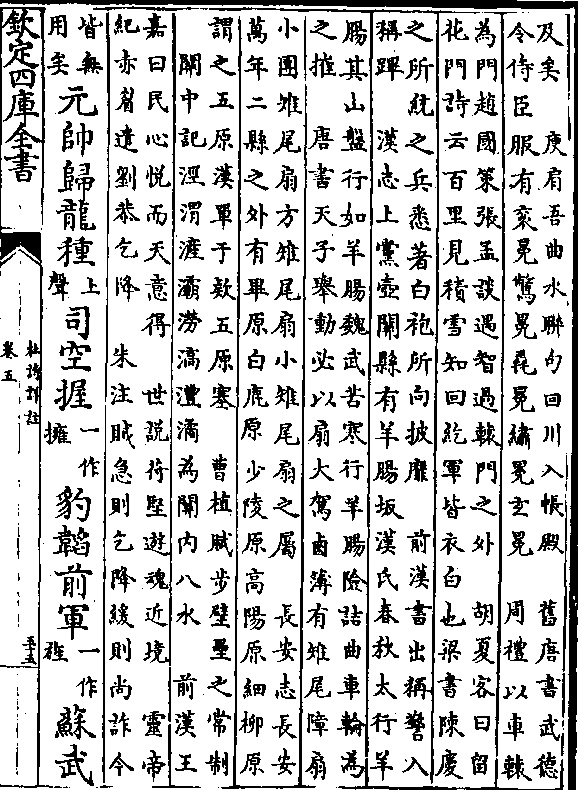 及矣　庾肩吾曲水聯句回川入帳殿　舊唐書武德
令侍臣服有衮冕鷩冕毳冕繡冕玄冕　周禮以車轅
為門趙國策張孟談遇智過轅門之外　胡夏客曰留
花門詩云百里見積雪知回紇軍皆衣白也梁書陳慶
之所統之兵悉著白袍所向披靡　前漢書出稱警入
稱蹕　漢志上黨壺關縣有羊腸坂漢氏春秋太行羊
腸其山盤行如羊腸魏武苦寒行羊腸險詰曲車輪為
之摧　唐書天子舉動必以扇大駕鹵簿有雉尾障扇
小團雉尾扇方雉尾扇小雉尾扇之屬　長安志長安
萬年二縣之外有畢原白鹿原少陵原高陽原細柳原
謂之五原漢單于欵五原塞　曹植賦步壁壘之常制
關中記涇渭滻灞澇潏灃滈為關內八水　前漢王
嘉曰民心悦而天意得　世説苻堅遊魂近境　靈帝
紀赤眉遣劉恭乞降　朱注賊急則乞降緩則尚詐今
皆無
用矣
元帥歸龍種
上
聲
司空握
一作
擁
豹韜前軍
一作
程
蘇武
欽定四庫全書
杜詩詳註
卷五
五十五